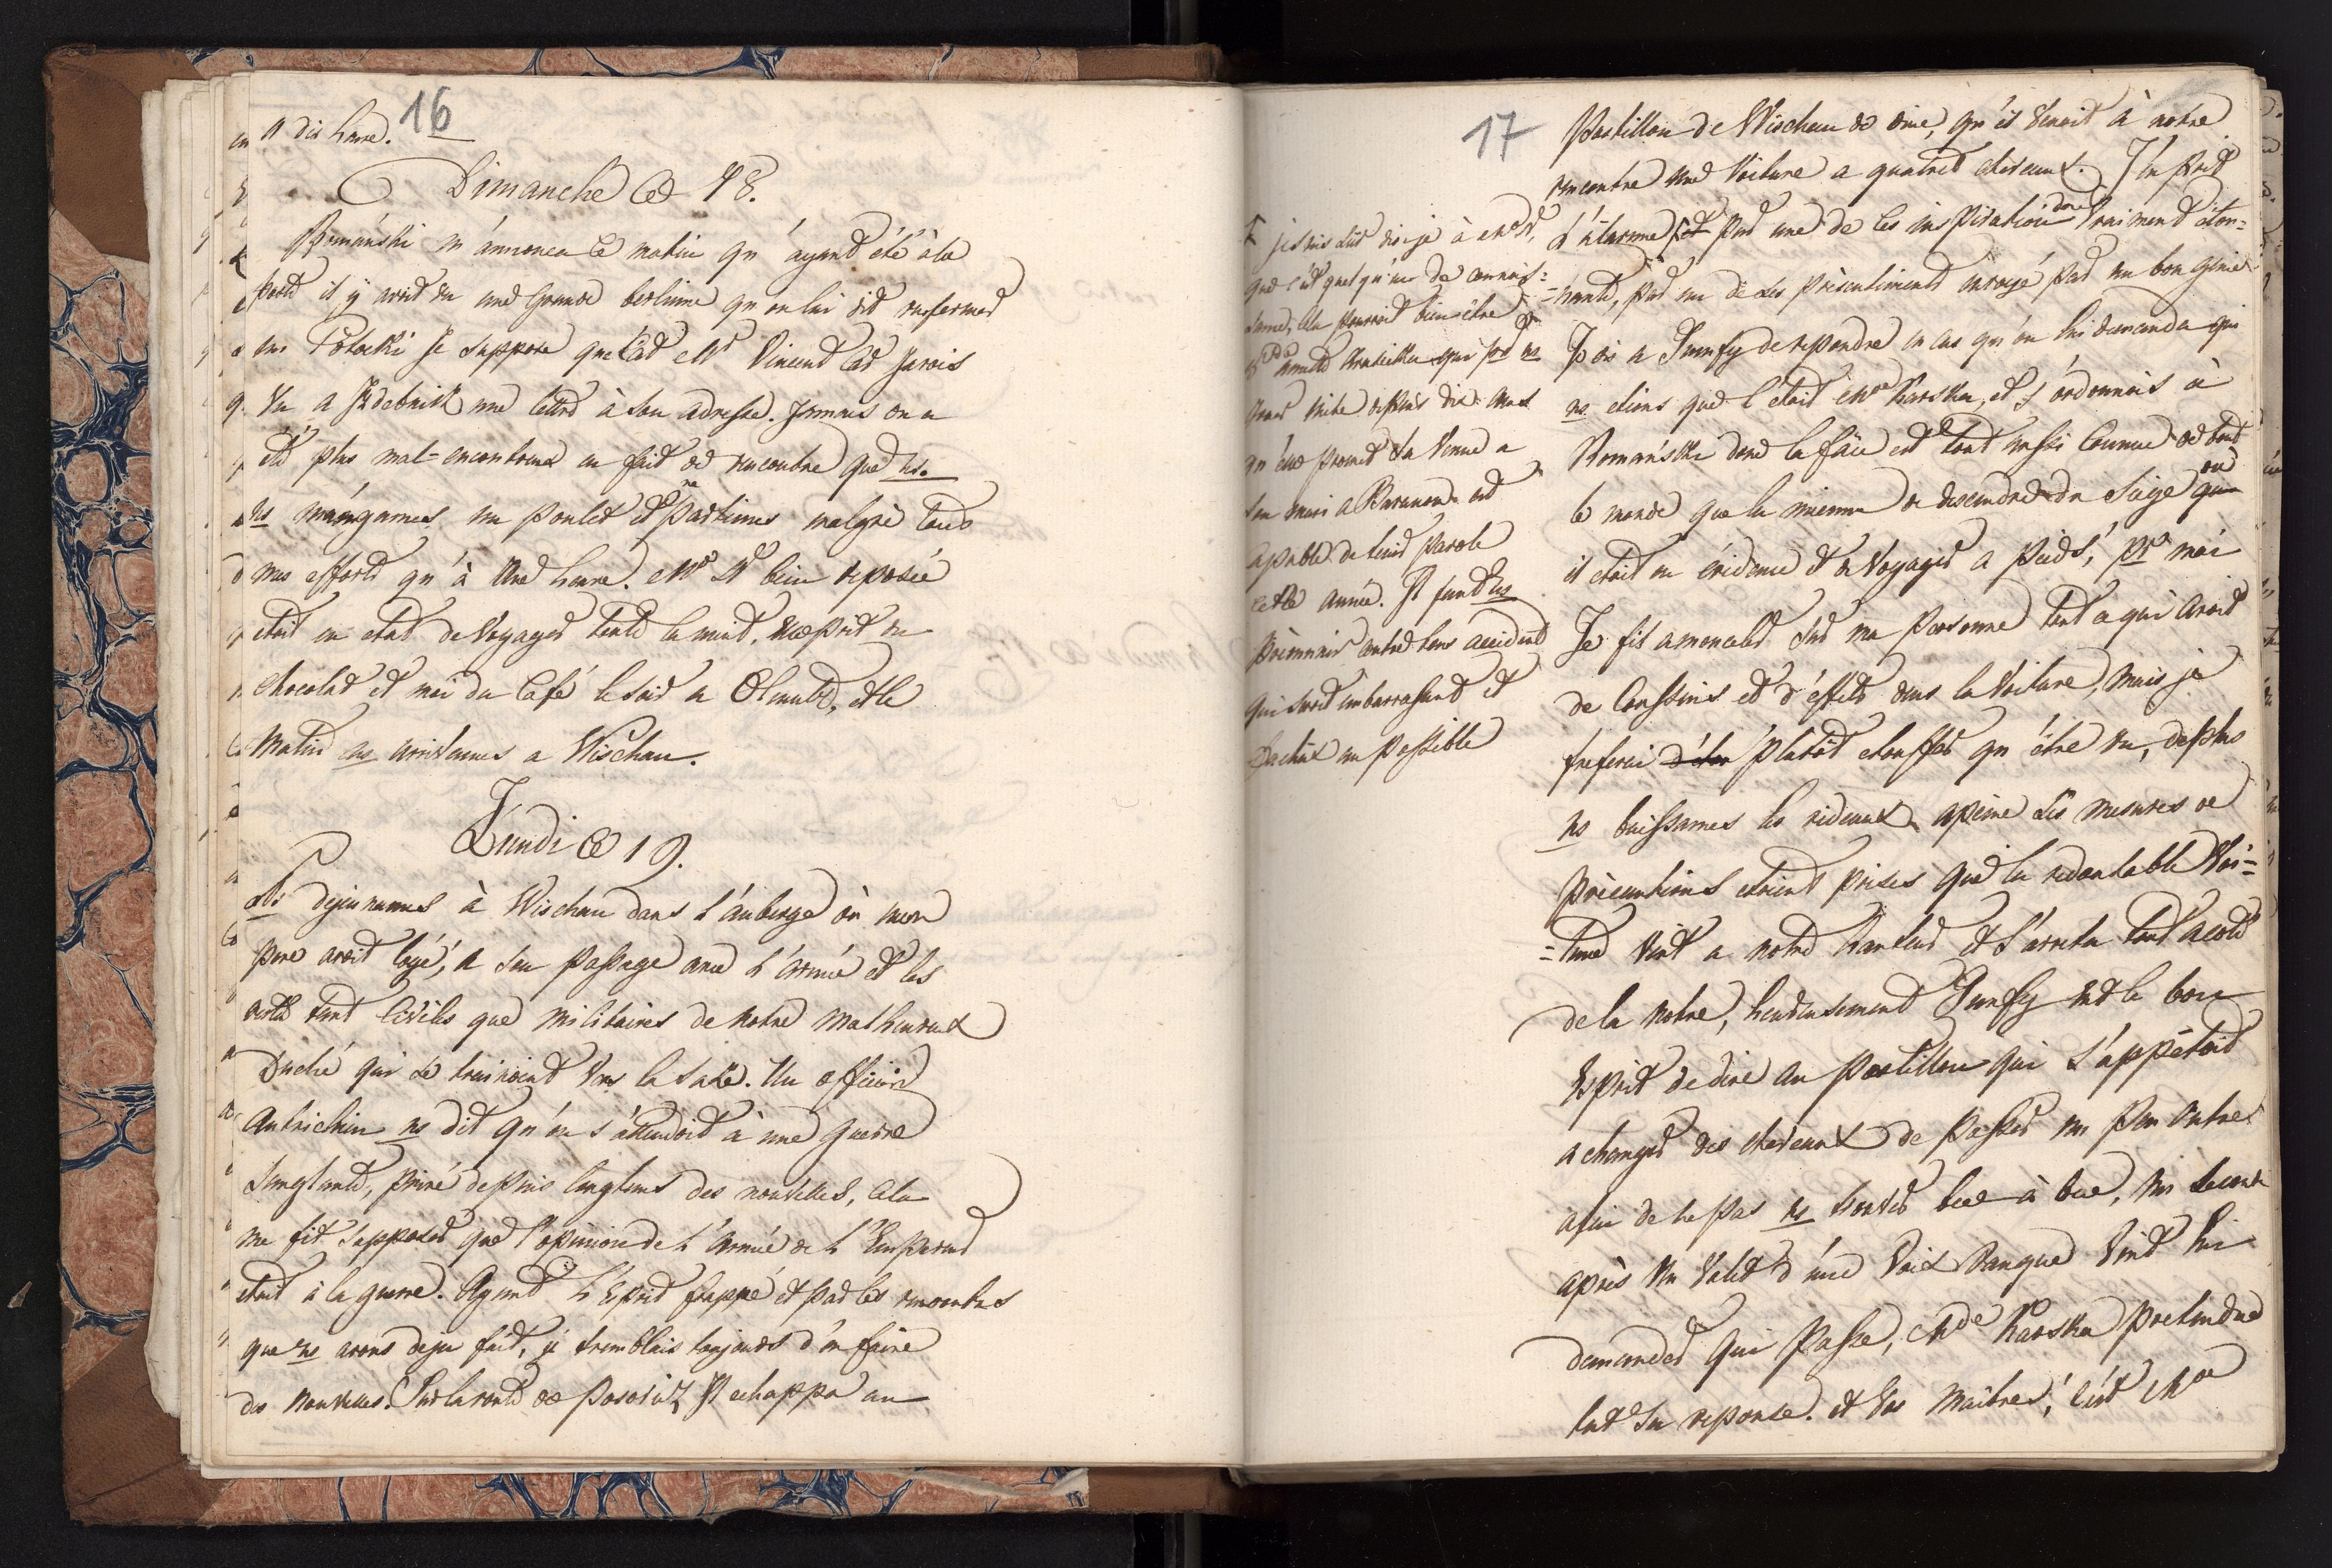 16
a dix heure.
Dimanche Ce 18.
Romański m'annonca Ce matin qu'ayant été à la
poste il y avoit vu une Grande berlinne qu'on lui dit renfermer
un Potocki Je Suppose que c'est Mr Vincent Car J'avois
Vu a une lettre à Son adresse. Jamais on a
été plus mal-encontreux en fait de rencontre que ns.
ns mángames un poulet et ne partimes malgré tous
mes efforts qu'à Une heure. bien reposée
etoit en etat de Voyager toute la nuit. prit du
chocolat et moi du Café le soir a Olmutz, et le
Matin ns arrivames a Wischau.
Lundi Ce 19.
Ns dejeunames à Wischau dans l'auberge où mon
pere avoit logé, a Son passage avec l'armée et les
tant Civiles que militaires de notre malheureux
Duché qui se trainoient Vers la Saxe. Un officier
Autrichien ns dit qu'on s'attendoit à une guerre
Sanglante, privé depuis longtems des nouvelles, Cela
me fit Supposer que l'opinion de l'armée de l'Empereur
etoit à la guerre. Ayant l'Esprit frappé et par les rencontres
que ns avons deja fait, je tremblais toujours d'en faire
des nouvelles. Sur la route de Il echappa au
17
Postillon de Wischau de dire, qu'il Venoit à notre
rencontre une Voiture a quatre chevaux. J'en pris
l'alarme et par une de Ces inspirations Vraiment éton-
-nante, par un de Ces présentiments envoyé par un bon génie
Je dis a de repondre en Cas qu'on lui demanda qui
ns etions que C'étoit Me Karska, et J'ordonnois à
Romański dont la face est tout aussi Connue de tout
le monde que la mienne de descendre du Siège où
il etoit en évidence et de Voyager a pieds, pr moi
Je fis amonceler Sur ma personne tout ce qui avoit
de Coussins et d'éffets dans la Voiture, mais je
preferai d'etre plutôt etouffer qu'être vu, de plus
ns baissames les rideaux, apeine Ces mesures de
précautions etoient prises que la redoutable Voi-
-ture vint a notre hauteur et S'arreta tout a coté
de la notre, heureusement eut le bon
Esprit de dire au postillon qui S'appétoit
a changer des chevaux de passer un peu outre
afin de ne pas ns trouver bec à bec, un
après Un Valet d'une Voix rauque Vint lui
demander Qui Passe, Mde Karska pretendue
fut Sa reponse. et Vos Maitres, C'est Me
je Suis Sur dis-je à
que C'est quelqu'un de connois-
sance, Cela pourroit bien être

depuis dix ans
qu'elle promet Sa Venue a
Son mari a est
Capable de tenir parole
cette année. Il faut ns
prémunir contre tous accident
qui Seroit embarrassant et
facheux au possible